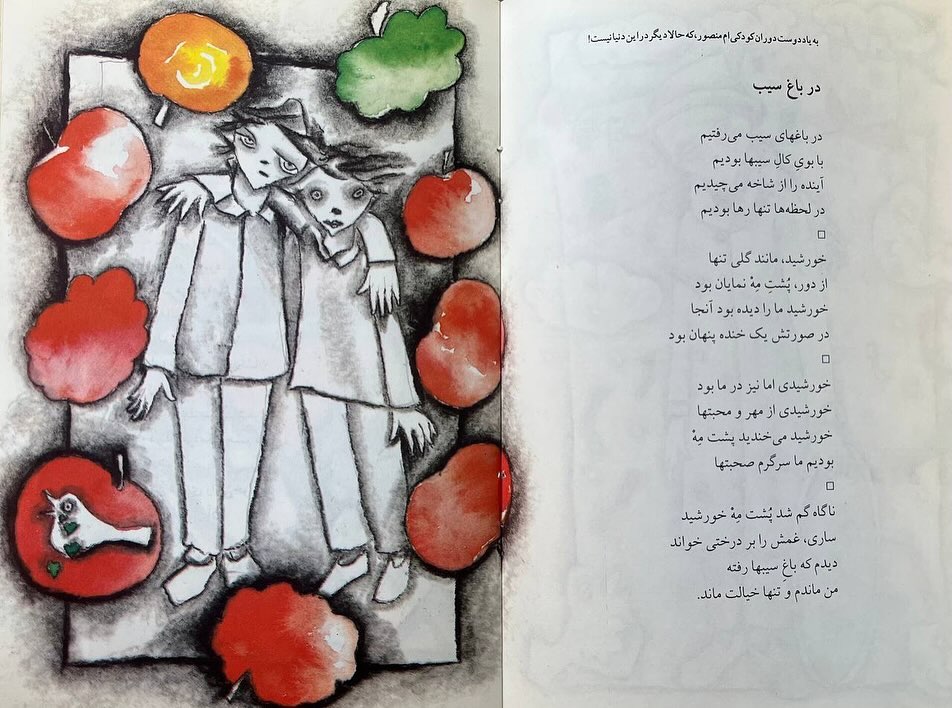 به یاد دوست دوران کودکی‌ام منصور، که حالا دیگر در این دنیا نیست!
در باغ سیب
در باغهای سیب می‌رفتیم
با بویِ کالِ سیبها بودیم
آینده را از شاخه می‌چیدیم
در لحظه‌ها تنها رها بودیم
□
خورشید، مانند گلی تنها
از دور، پُشتِ مِهْ نمایان بود
خورشید ما را دیده بود آنجا
در صورتش یک خنده پنهان بود
□
خورشیدی اما نیز در ما بود
خورشیدی از مهر و محبتها
خورشید می‌خندید پشت مِهْ
بودیم ما سرگرم صحبتها
□
ناگاه گم شد پُشت مِهْ خورشید
ساری، غمش را بر درختی خواند
دیدم که باغِ سیبها رفته
من ماندم و تنها خیالت ماند.